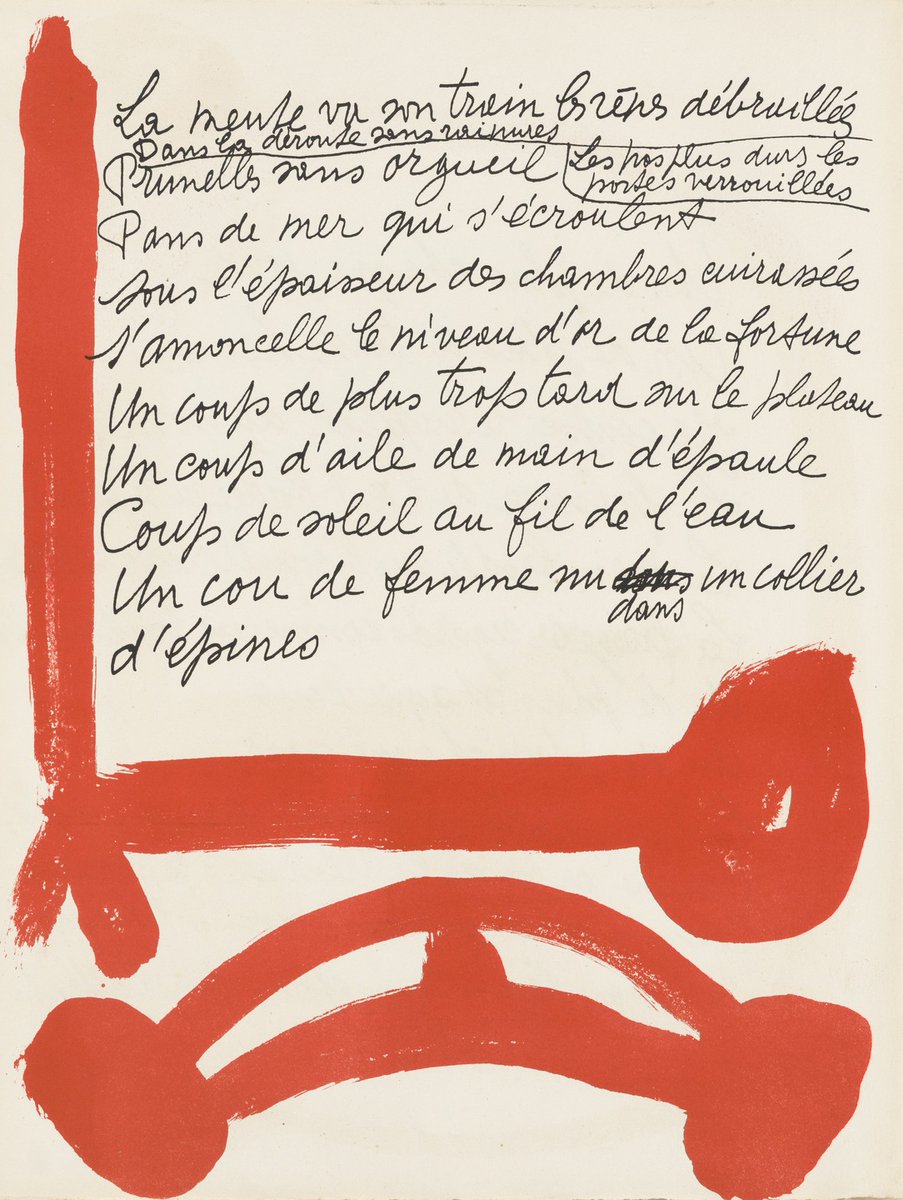 La meute va son train les débraillés
Dans la déroute sans rainures
Prunelles sans orgueil Les pas plus durs les
portes verrouillées
Pans de mer qui s'écroulent
sous l'épaisseur des chambres cuirassées
s'amoncelle le niveau d'or de la fortune
Un coup de plus trop tard sur le plateau
Un coup d'aile de main d'épaule
Coup de soleil au fil de l'eau
Un cou de femme nu dans un collier
d'épines